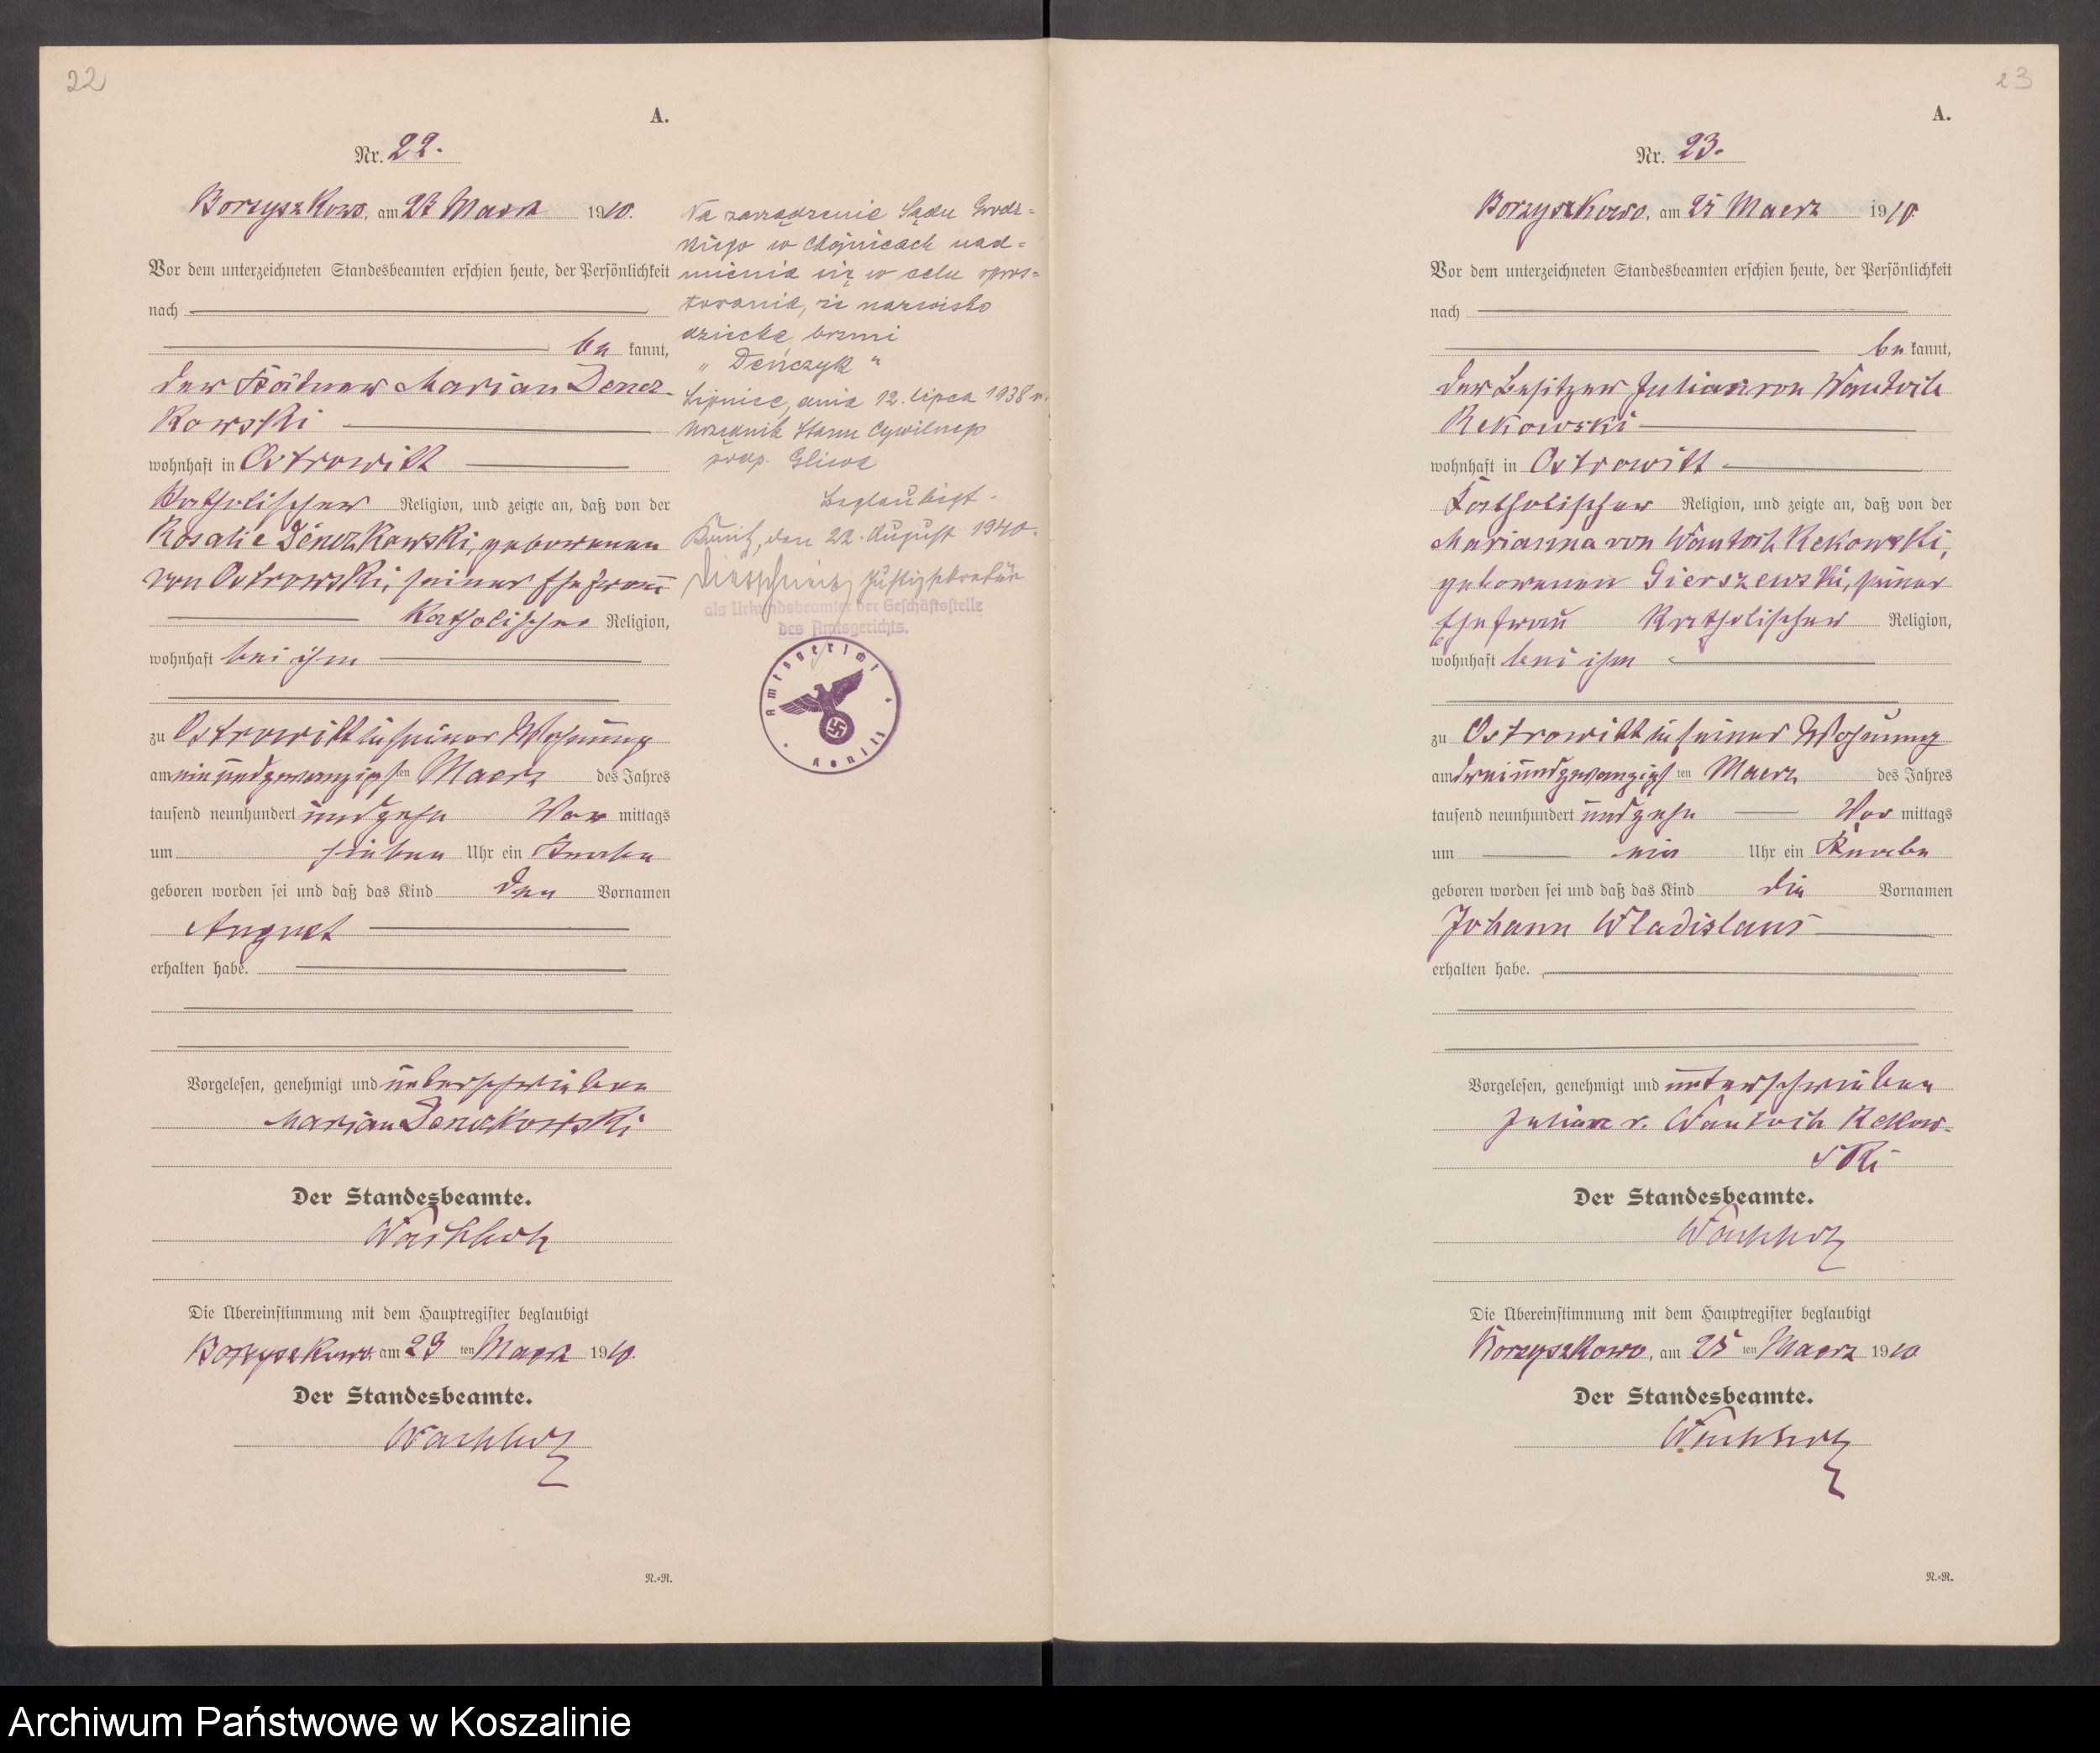 22
A.
Nr. 22.
Borzyszkowo, am 23 Maerz 1910.
Vor dem unterzeichneten Standesbeamten erschien heute, der Persönlichkeit
nach
be kannt,
der Käthner Marian Dencz-
kowski
wohnhaft in Ostrowitt
katholischer Religion, und zeigte an, daß von der
Rosalie Denczkowski, geborenen
von Ostrowski, seiner Ehefrau
katholischer Religion,
wohnhaft bei ihm
zu Ostrowitt in seiner Wohnung
am einundzwanzigsten Maerz des Jahres
tausend neunhundert und zehn Vor mittags
um sieben Uhr ein Knabe
geboren worden sei und daß das Kind den Vornamen
August
erhalten habe.
Vorgelesen, genehmigt und unterschrieben
Marian Denczkowski
Der Standesbeamte.
Wachholz
Die Übereinstimmung mit dem Hauptregister beglaubigt
Borzyszkowo, am 23 ten Maerz 1910.
Der Standesbeamte.
Wachholz
N.=N.
Na zarządzenie Sądu Grodz=
kiego w Chojnicach nad=
mienia się w celu spros=
towania, że nazwisko
dziecka brzmi
„ Deńczyk "
Lipnica, dnia 12. lipca 1938 r.
Urzędnik Stanu Cywilnego
Gliwa
Beglaubigt.
Konitz, den 22. August 1940.
Justizsekretär
als Urkundsbeamter der Geschäftsstelle
des Amtsgerichts.
Amtsgericht
Konitz
23
A.
Nr. 23.
Borzyszkowo, am 25 Maerz 1910.
Vor dem unterzeichneten Standesbeamten erschien heute, der Persönlichkeit
nach
be kannt,
der Besitzer Julian von Wantoch
Rekowski
wohnhaft in Ostrowitt
katholischer Religion, und zeigte an, daß von der
Marianna von Wantoch Rekowski,
geborenen Gierszewski, seiner
Ehefrau katholischer Religion,
wohnhaft bei ihm
zu Ostrowitt in seiner Wohnung
am dreiundzwanzigsten Maerz des Jahres
tausend neunhundert und zehn Vor mittags
um ein Uhr ein Knabe
geboren worden sei und daß das Kind die Vornamen
Johann Wladislaus
erhalten habe.
Vorgelesen, genehmigt und unterschrieben
Julian v. Wantoch Rekow-
ski
Der Standesbeamte.
Wachholz
Die Übereinstimmung mit dem Hauptregister beglaubigt
Borzyszkowo, am 25 ten Maerz 1910
Der Standesbeamte.
Wachholz
N.=N.
Archiwum Państwowe w Koszalinie